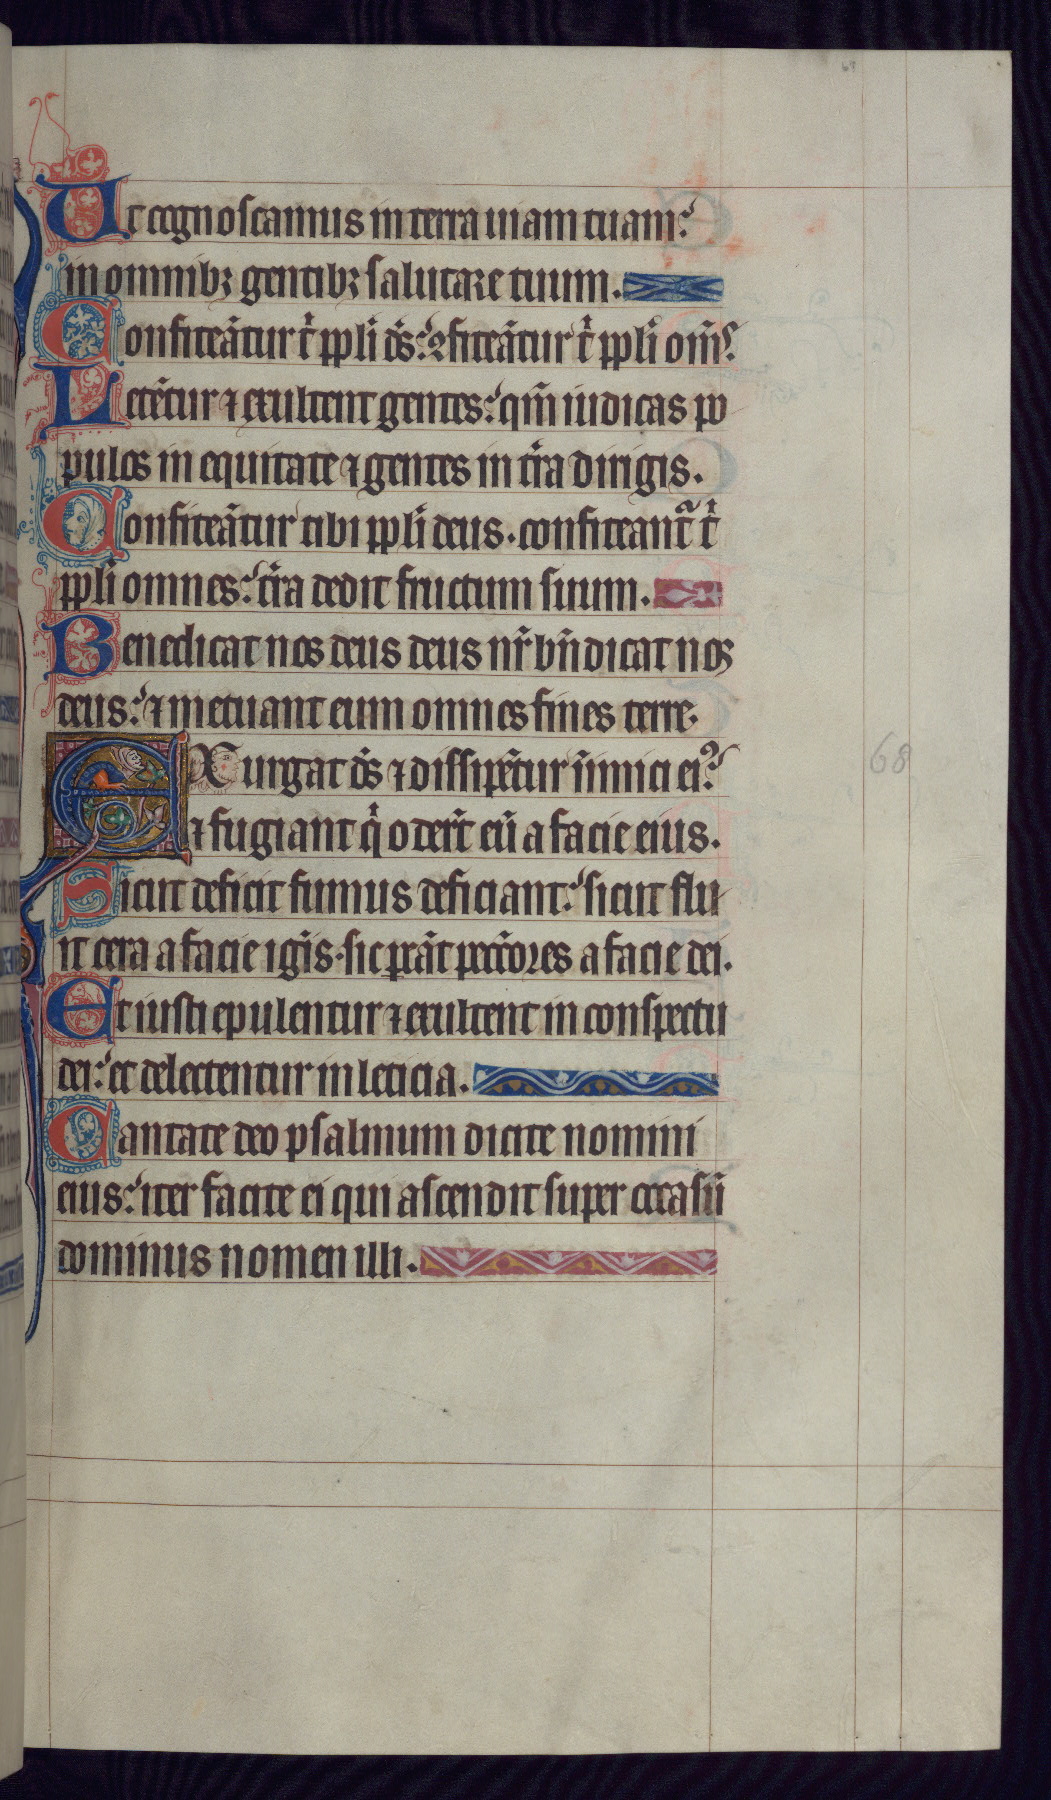 Ut cognoscamus in terra uiam tuam:
in omnibꝫ gentibꝫ salutare tuum.
Confiteāt᷑ur t̉ ppl̉i ds̄: ꝯfiteāt᷑ur t̉ ppl̉i om̄s
Letēt᷑ur ⁊ exultent gentes: qm̄ iudicas po
pulos in equitate ⁊ gentes in tr̄a dirigis.
Confiteāt᷑ur tibi ppl̉i deus. confiteant᷑ t̉
ppl̉i omnes: tr̄a dedit fructum suum.
Benedicat nos deus deus nr̄ bn̄dicat nos
deus: ⁊ metuant eum omnes fines terre.
EXurgat ds̄ ⁊ dissipēt᷑ur īnimici eiꝰ:
⁊ fugiant q̉ oder̄t eū a facie eius.
Sicut deficit fumus deficiant: sicut flu
it cera a facie igīs. sic peāt pectōres a facie dei.
Et iusti epulentur ⁊ exultent in conspectu
dei: et delectentur in leticia.
Cantate deo psalmum dicite nomini
eius: iter facite ei qui ascendit super occasū
dominus nomen illi.
68